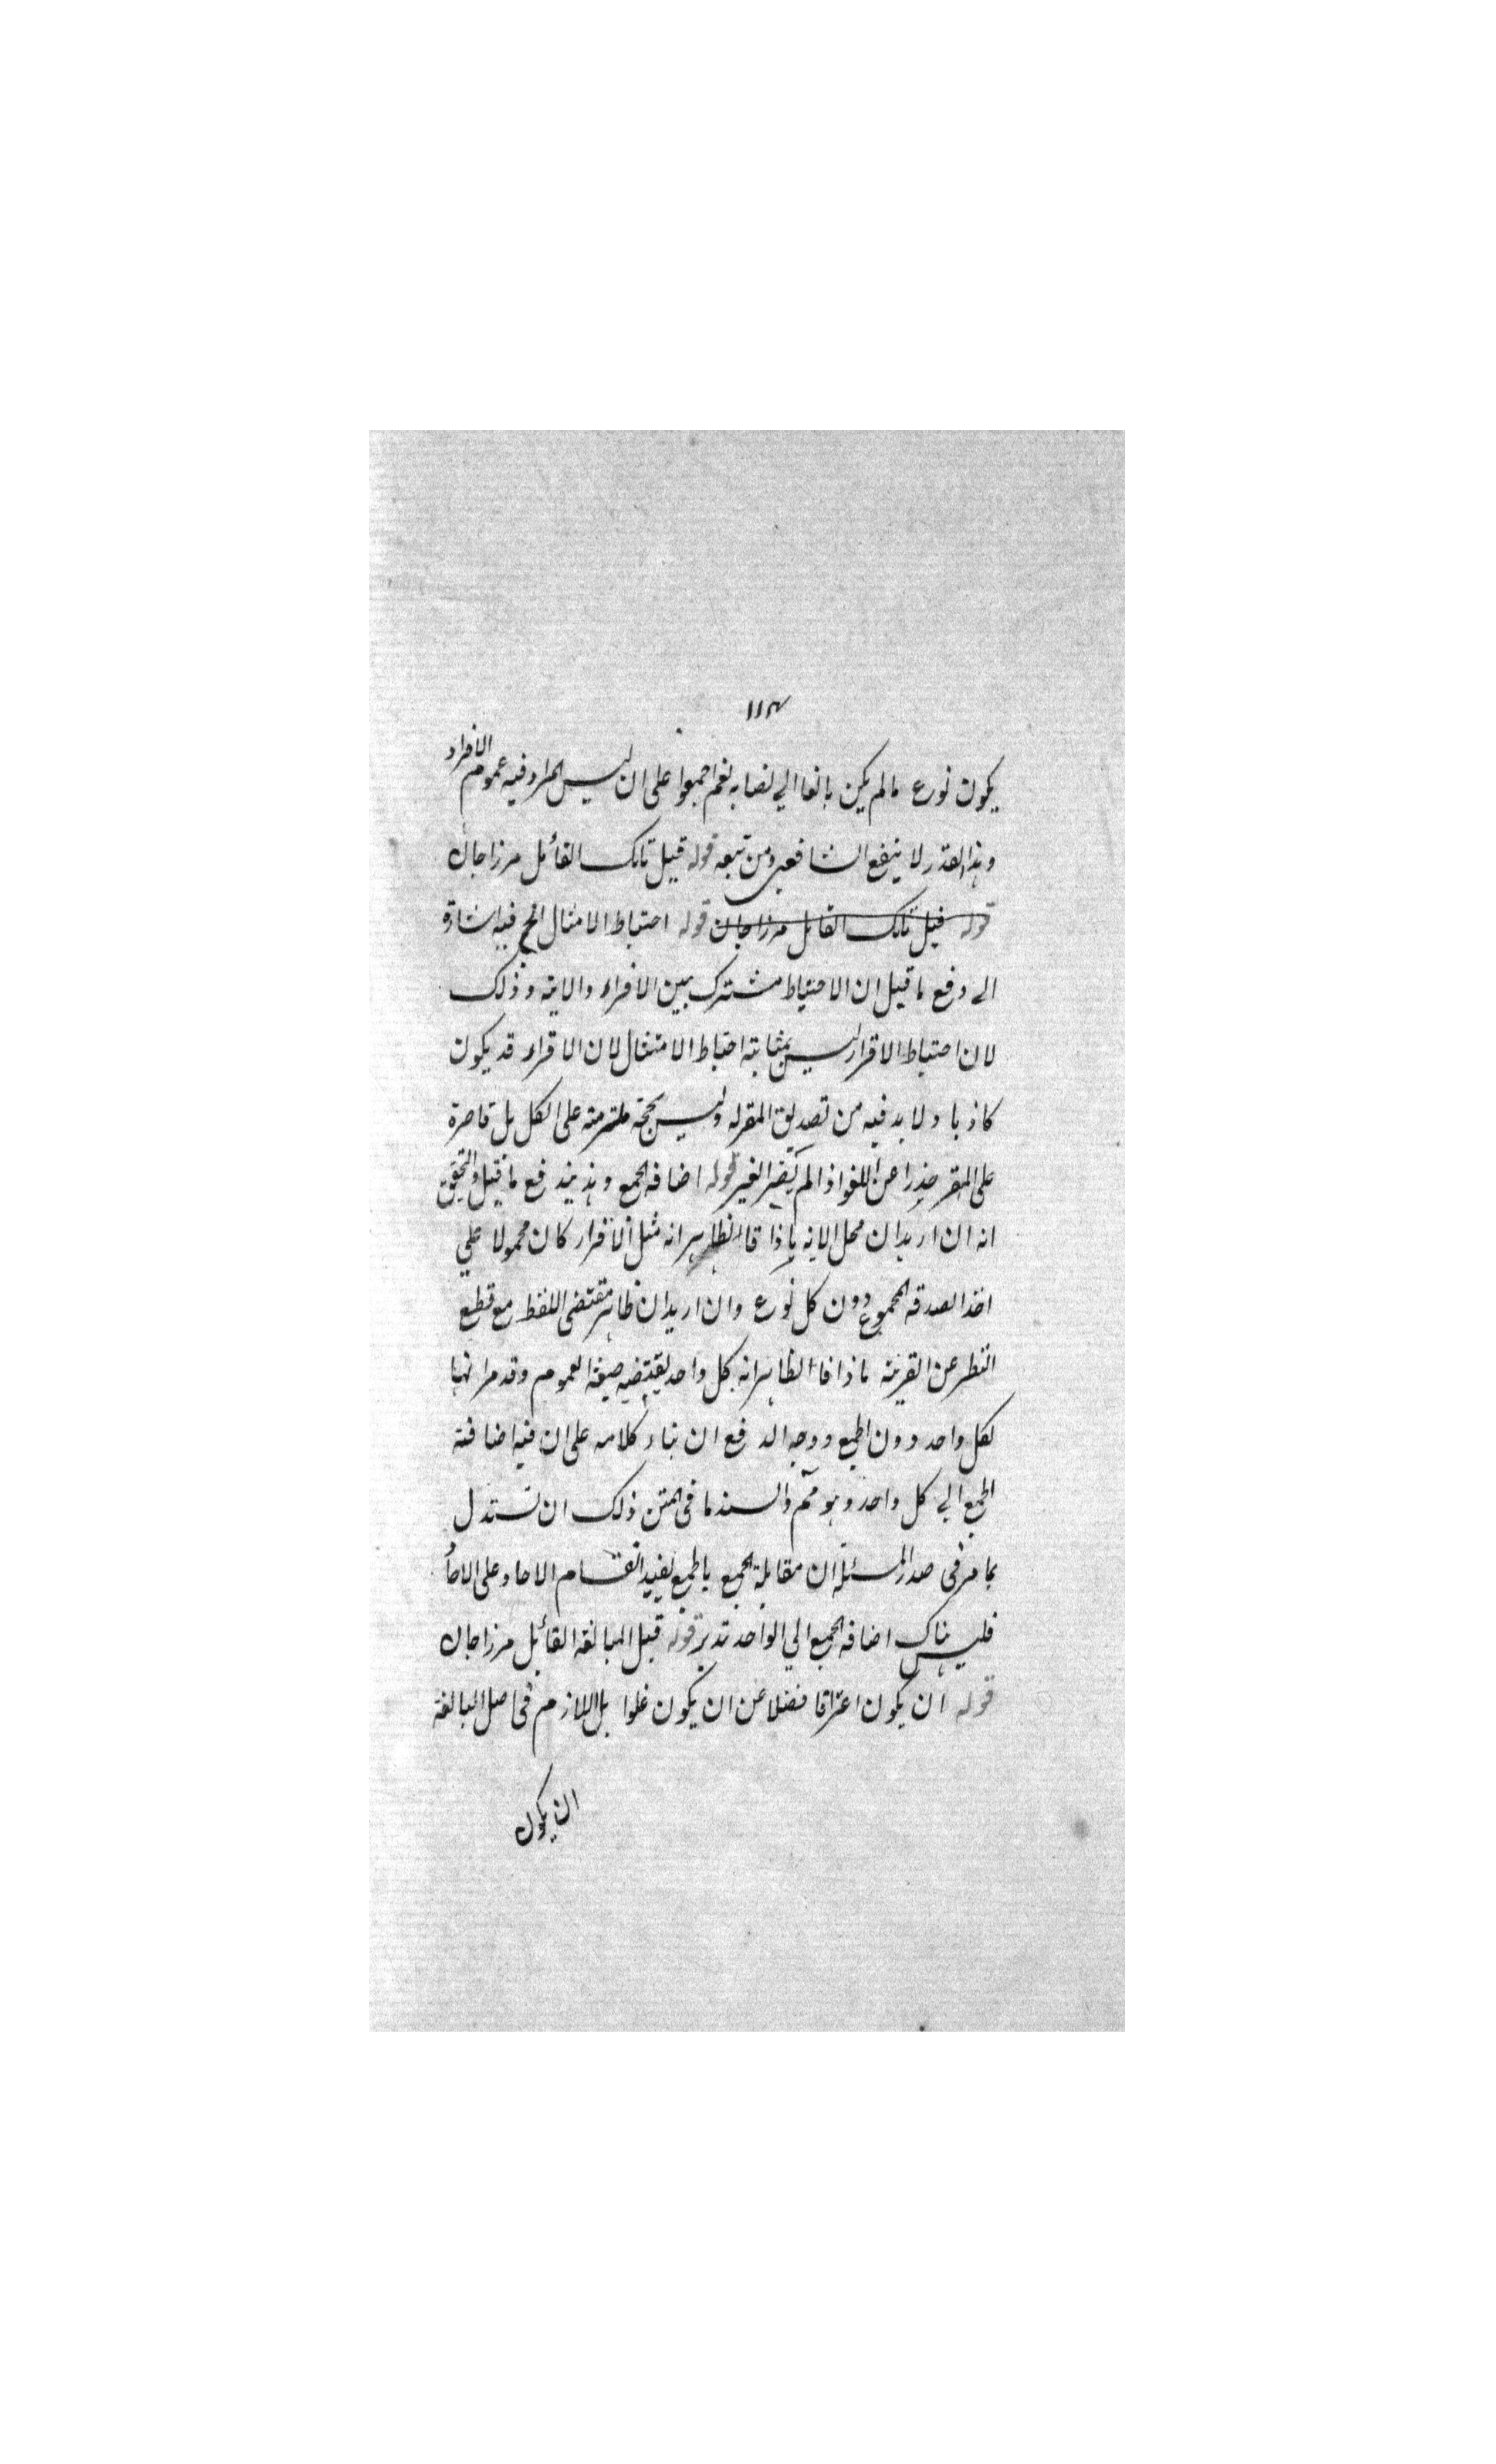 ١١٣
يكون نوع ما لم يكن بالغا الى نصابه نعم اجمعوا على ان ليس المراد فيه عموم الافراد
وهذا القدر لا ينفع الشافعي ومن تبعه قوله قيل تانك القائل مرزا جان
قوله قيل تانك القائل مرزا جان قوله احتياط الامتثال الخ فيه اشارة
الى دفع ما قيل ان الاحتياط مشترك بين الاقرار والاية وذلك
لان احتياط الاقرار ليس بمثابة احتياط الامتثال لان الاقرار قد يكون
كاذبا ولا بد فيه من تصديق المقر له وليس بحجة ملتزمة على الكل بل قاصرة
على المقر حذرا عن اللغو اذا لم يضر الغير قوله اضافه الجمع وبه يندفع ما قيل والتحقيق
انه ان اريد ان محل الاية ماذا فالظاهر انه مثل الاقرار كان محمولا على
اخذ الصدقه لمجموع دون كل نوع وان اريد ان ظاهر مقتضى اللفظ مع قطع
النظر عن القرينة ماذا فالظاهر انه كل واحد يقتضيه صيغة العموم وقد مر انها
لكل واحد دون الجميع ووجه الدفع ان بناء كلامه على ان فيه اضافة
الجمع الى كل واحد وهو مم والسند ما فى المتن ذلك ان تستدل
بما مر فى صدر المسئلة ان مقابلة الجمع بالجمع يفيد انقسام الاحاد على الاحاد
فليس هناك اضافه الجمع الى الواحد تدبر قوله قيل المبالغة القائل مرزا جان
قوله ان يكون اغراقا فضلا عن ان يكون غلوا بل اللازم فى اصل المبالغة
ان يكون